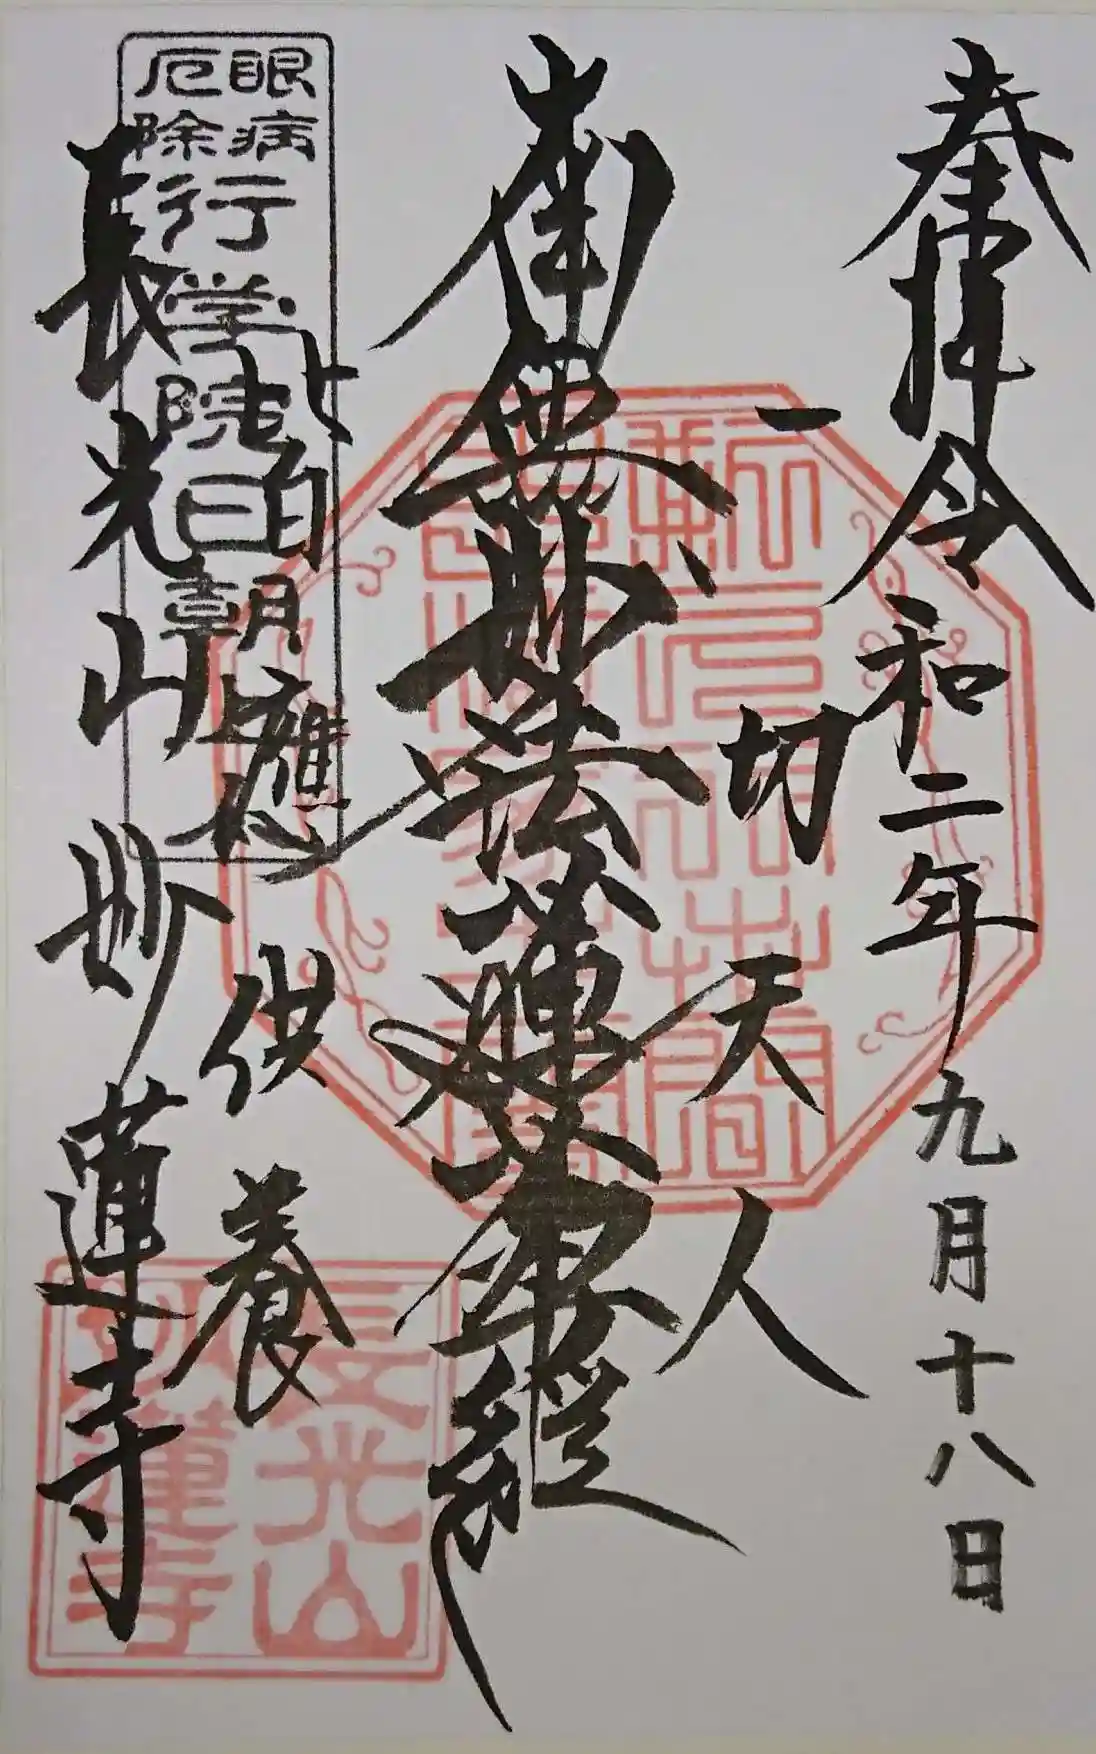 奉拝 令和二年九月十八日
一切天人
南無妙法蓮華経
皆應供養
長光山妙蓮寺
眼病
厄除
行学院日朝上人
長光山
妙蓮寺